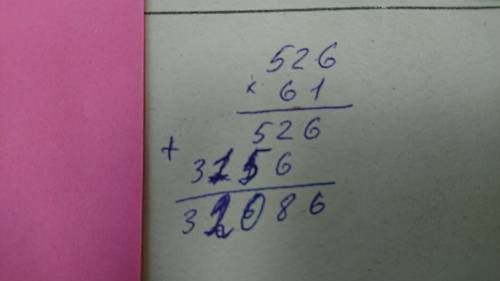 526
× 61
526
+
3156
32086